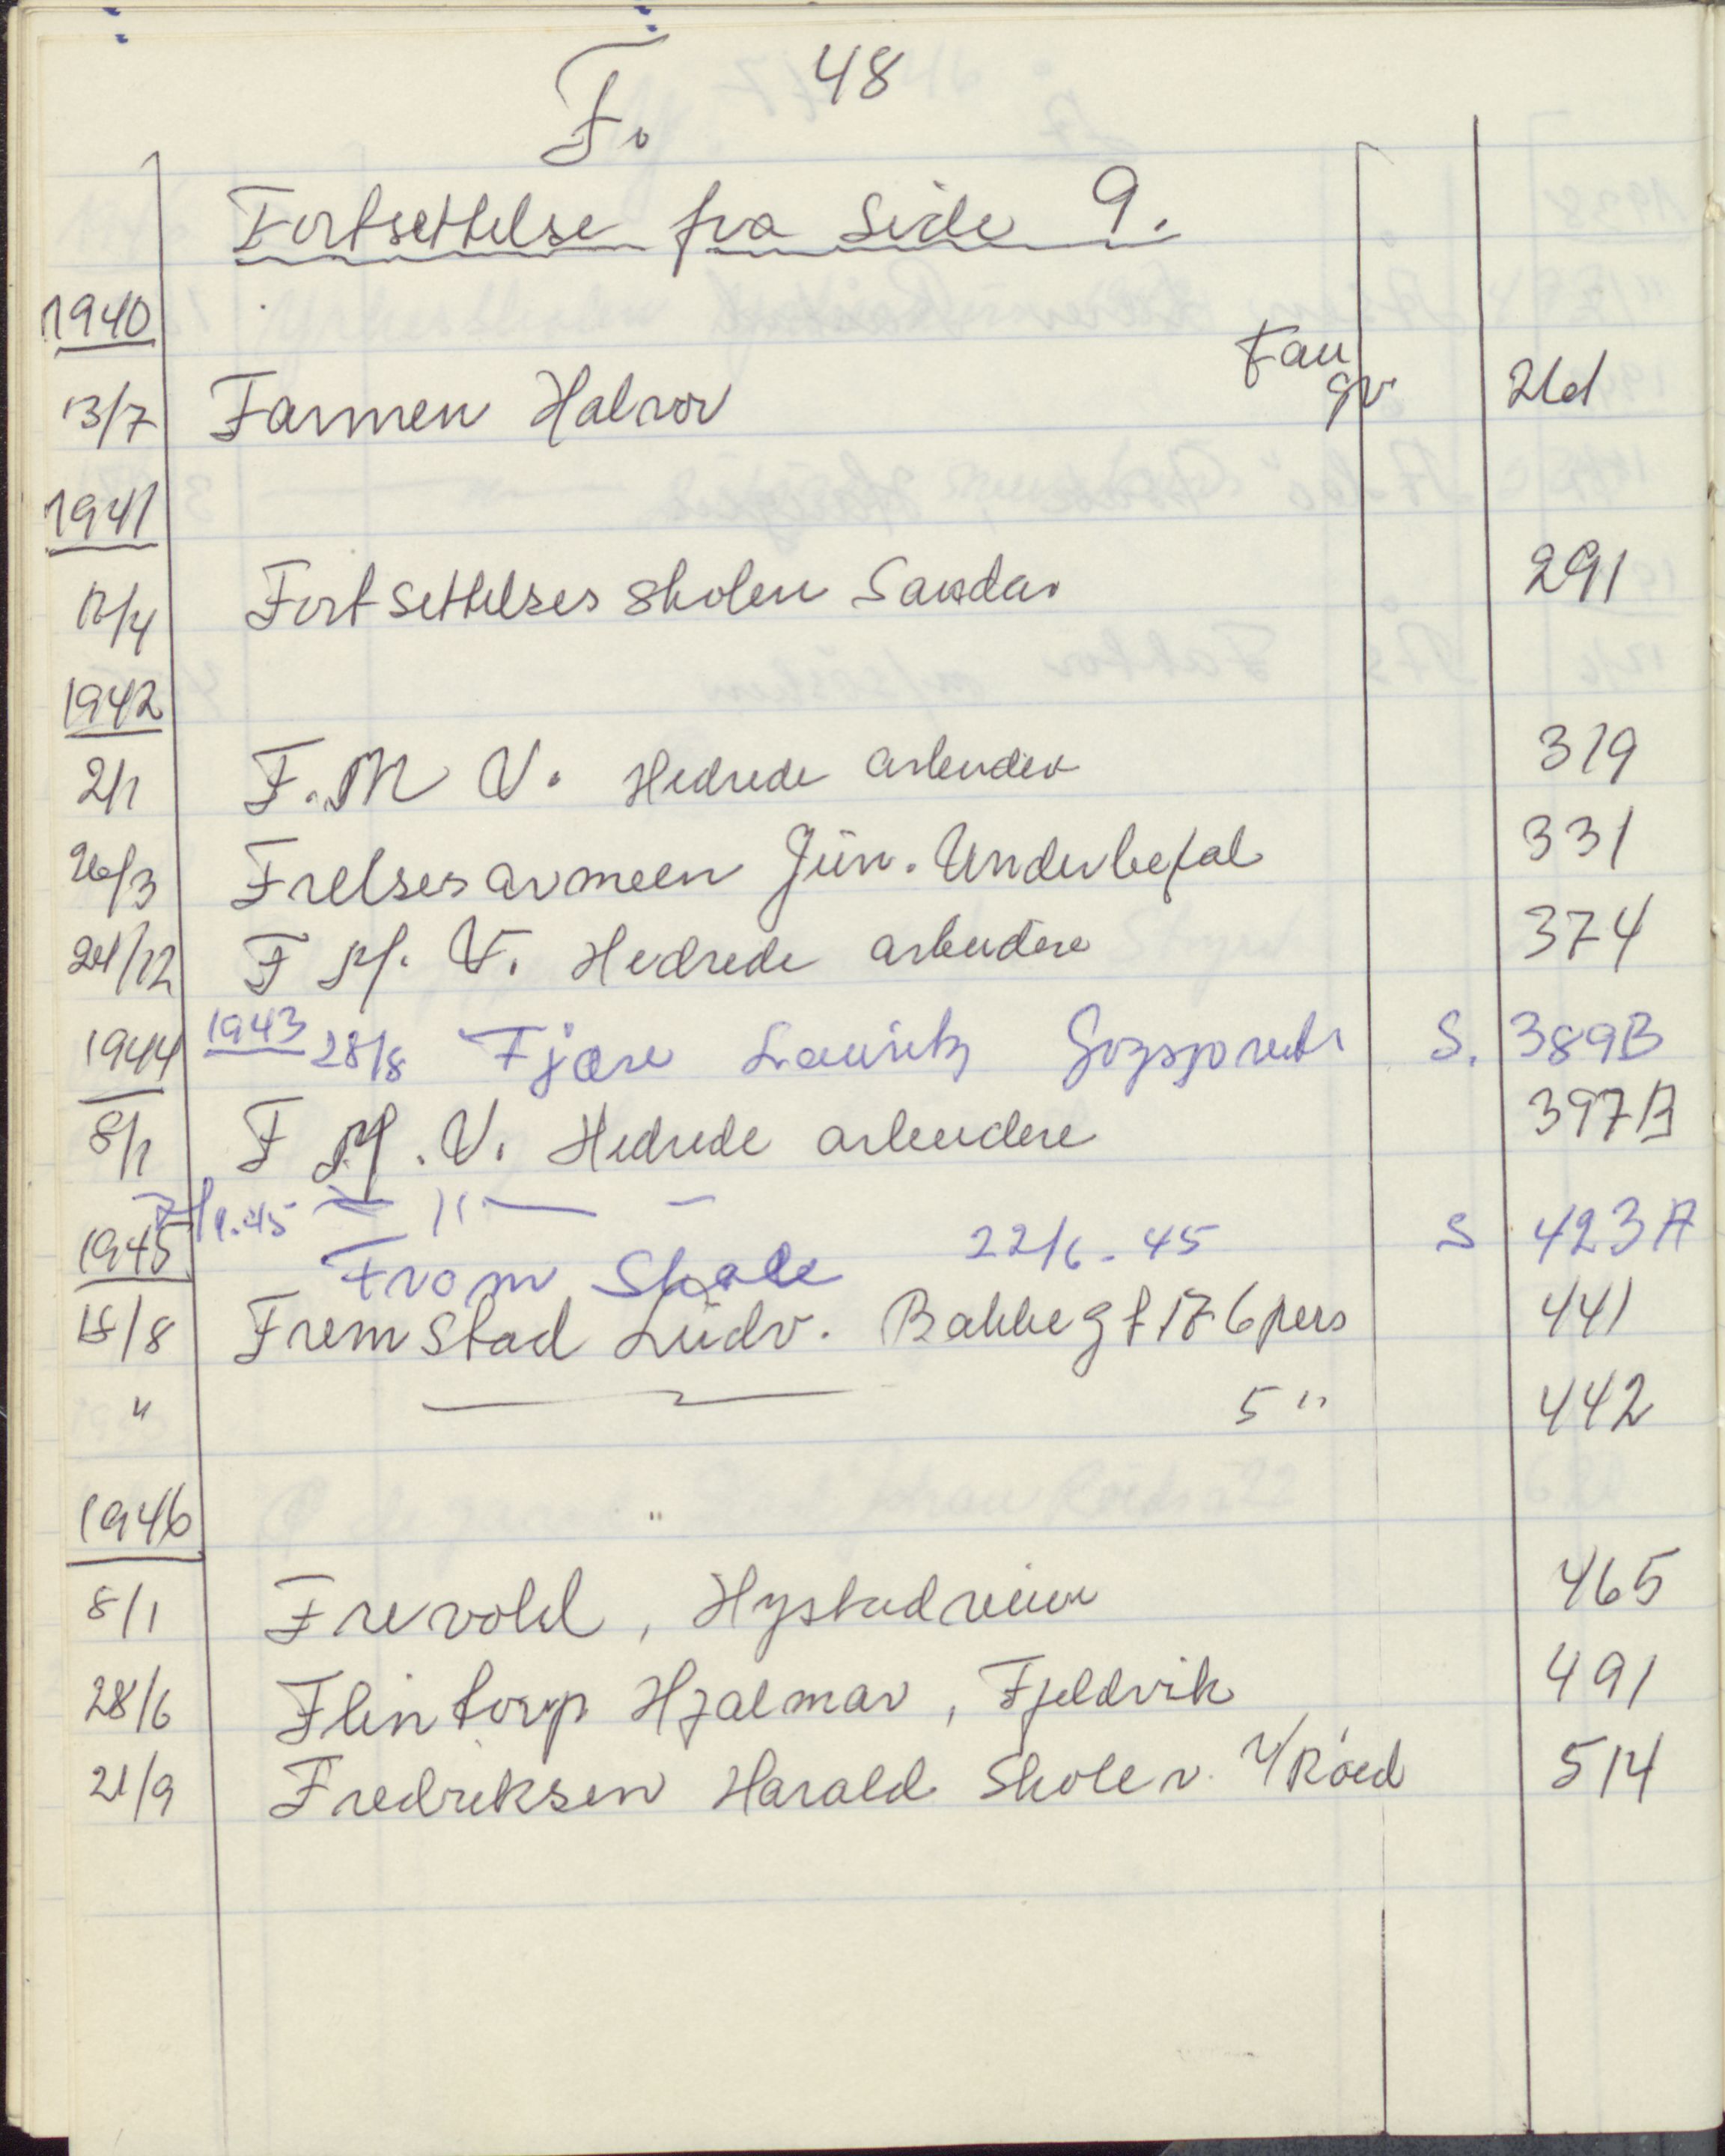 48
F.
Fortsettelse fra Side 9.
1940
13/7 Farmen Halvor Fam gr 261
1941
12/4 Fortsettelsesskolen Sandar 291
1942
2/1 F. M V. Hedrede arbeider 319
26/3 Frelsesarmeen Jün. Underbefal 331
24/12 F M. V. Hedrede arbeidere 374
1943 28/8 Fjære Lauritz S. 389B
1944
8/1 F M. V. Hedrede arbeidere 397B
7/1.45 — " — —
1945 From Skole 22/6.45 S 423A
18/8 Fremstad Ludv. Bakkegt 17 6 pers 441
" 5 " 442
1946
8/1 Frevold, Hystadveien 465
28/6 Flintorp Hjalmar, Fjeldvik 491
21/9 Fredriksen Harald Skole v. Y/Röed 514